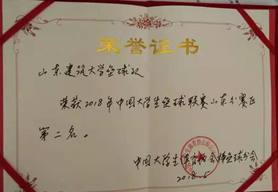 荣誉证书
山东建筑大学垒球队
荣获2018年中国大学生垒球联赛山东分赛区
第二名。
中国大学生体育协会棒垒球分会
2018.5